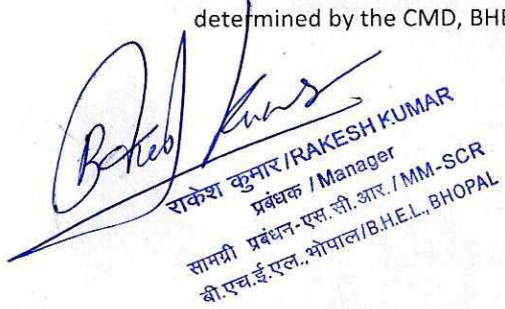 determined by the CMD, BHE
Rakesh Kumar
राकेश कुमार/RAKESH KUMAR
प्रबंधक / Manager
सामग्री प्रबंधन-एस.सी.आर./MM-SCR
बी.एच.ई.एल.,भोपाल/B.H.E.L.,BHOPAL